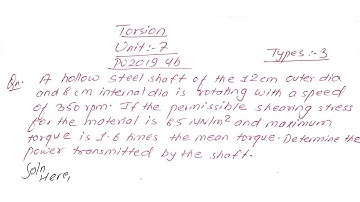 Torsion
Unit:-7
PU2019 4b
Types:-3
Qn. A hollow steel shaft of the 12cm outer dia
and 8cm internal dia is rotating with a speed
of 350 rpm. If the permissible shearing stress
for the material is 85 MN/m² and maximum
torque is 1.6 times the mean torque. Determine the
power transmitted by the shaft.
Soln
Here,